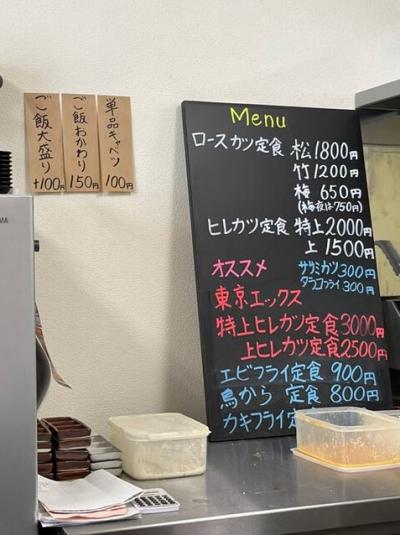 ご飯大盛り +100円
ご飯おかわり 150円
単品キャベツ 100円
Menu
ロースカツ定食 松1800円
竹1200円
梅 650円
(梅夜は750円)
ヒレカツ定食 特上2000円
上 1500円
オススメ
ササミカツ300円
タラコフライ300円
東京エックス
特上ヒレカツ定食3000円
上ヒレカツ定食2500円
エビフライ定食 900円
鳥から 定食 800円
カキフライ定